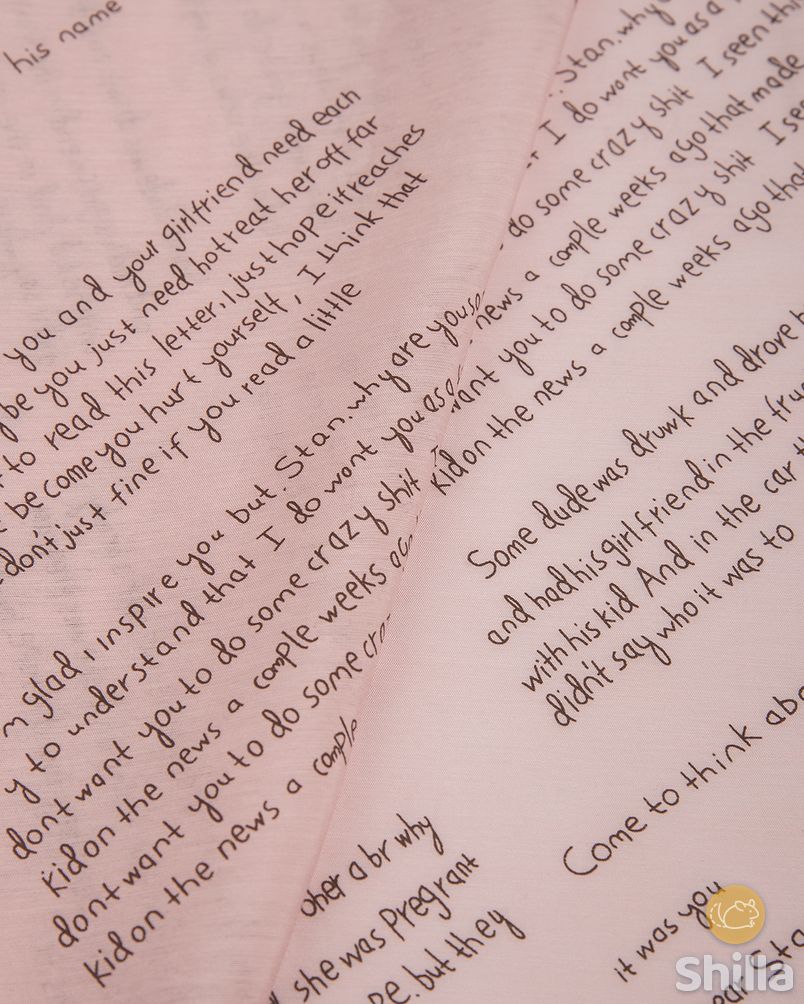 his name
you and your girlfriend need each
be you just need hot reat her off far
to read this letter, I just hope it reaches
become you hurt yourself, I think that
don't just fine if you read a little
glad i inspire you but. Stan. why are you
y to understand that I do wont you as a
dont want you to do some crazy shit
kid on the news a comple weeks ago
dont want you to do some cra
kid on the news a comple
. Stan. why
I do wont you as a
do some crazy shit I seen
news a comple weeks ago that made
want you to do some crazy shit I see
kid on the news a comple weeks ago that
Some dude was drunk and drove
and had his girlfriend in the
with his kid And in the car
didn't say who it was to
Come to think abo
oher a br why
she was Pregrant
pe. but they
it was you
ar Sta
Shilla